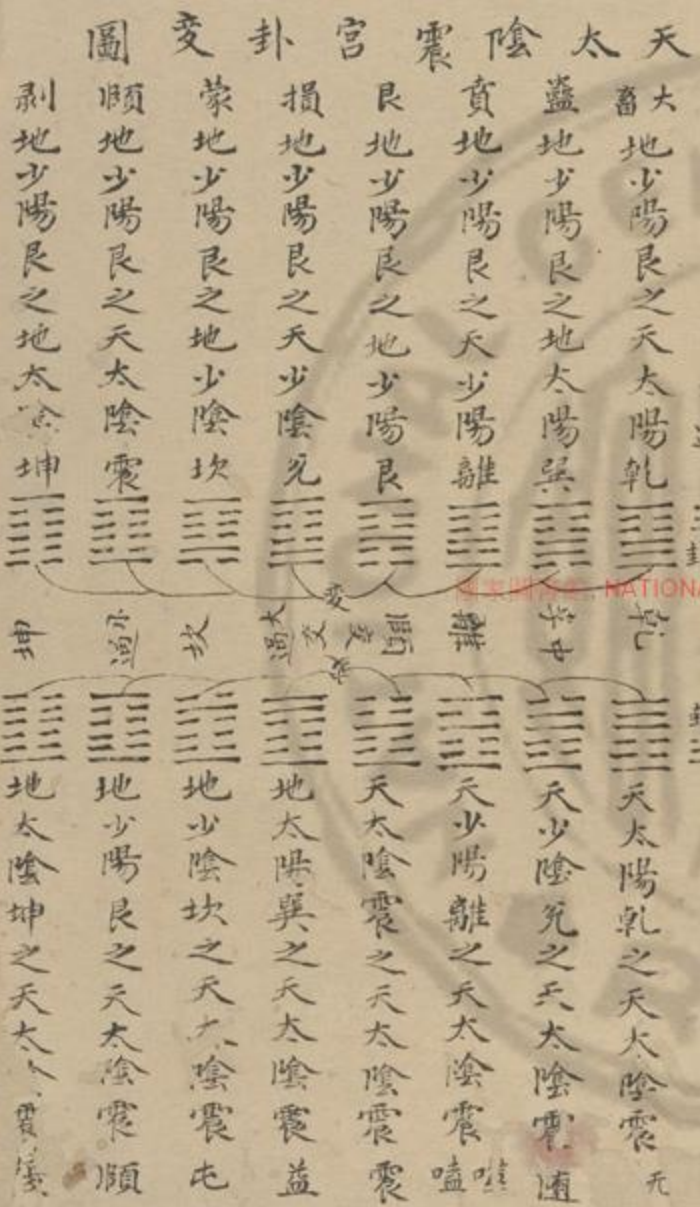 天太陰震宮卦变圖
大畜地少陽艮之天太陽乾
蠱地少陽艮之地太陽巽
賁地少陽艮之天少陽離
艮地少陽艮之地少陽艮
損地少陽艮之天少陰兌
蒙地少陽艮之地少陰坎
頥地少陽艮之天太陰震
剥地少陽艮之地太陰坤
变
乾
中孚
離
互
交
大過
坎
小過
坤
天太陽乾之天太陰震 无
天少陰兌之天太陰震 随
天少陽離之天太陰震 噬嗑
天太陰震之天太陰震 震
地太陽巽之天太陰震 益
地少陰坎之天太陰震 屯
地少陽艮之天太陰震 頥
地太陰坤之天太 震
NATIONA